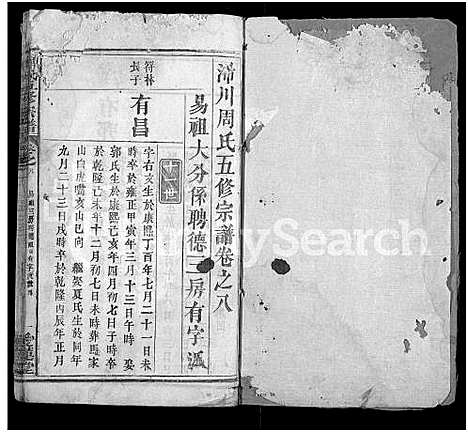 沛川周氏五修宗譜卷之八
易祖大分係聘德三房有字派
十一世
符林長子
有昌
字右文生於康熙丁酉年七月二十一日未
時卒於雍正甲寅年三月十三日午時 娶
郭氏生於康熙己亥年四月初七日子時卒
於乾隆己未年十二月初七日未時葬馬家
山白虎嘴亥山巳向 繼娶夏氏生於同年
九月二十三日戌時卒於乾隆丙辰年正月
FamilySearch